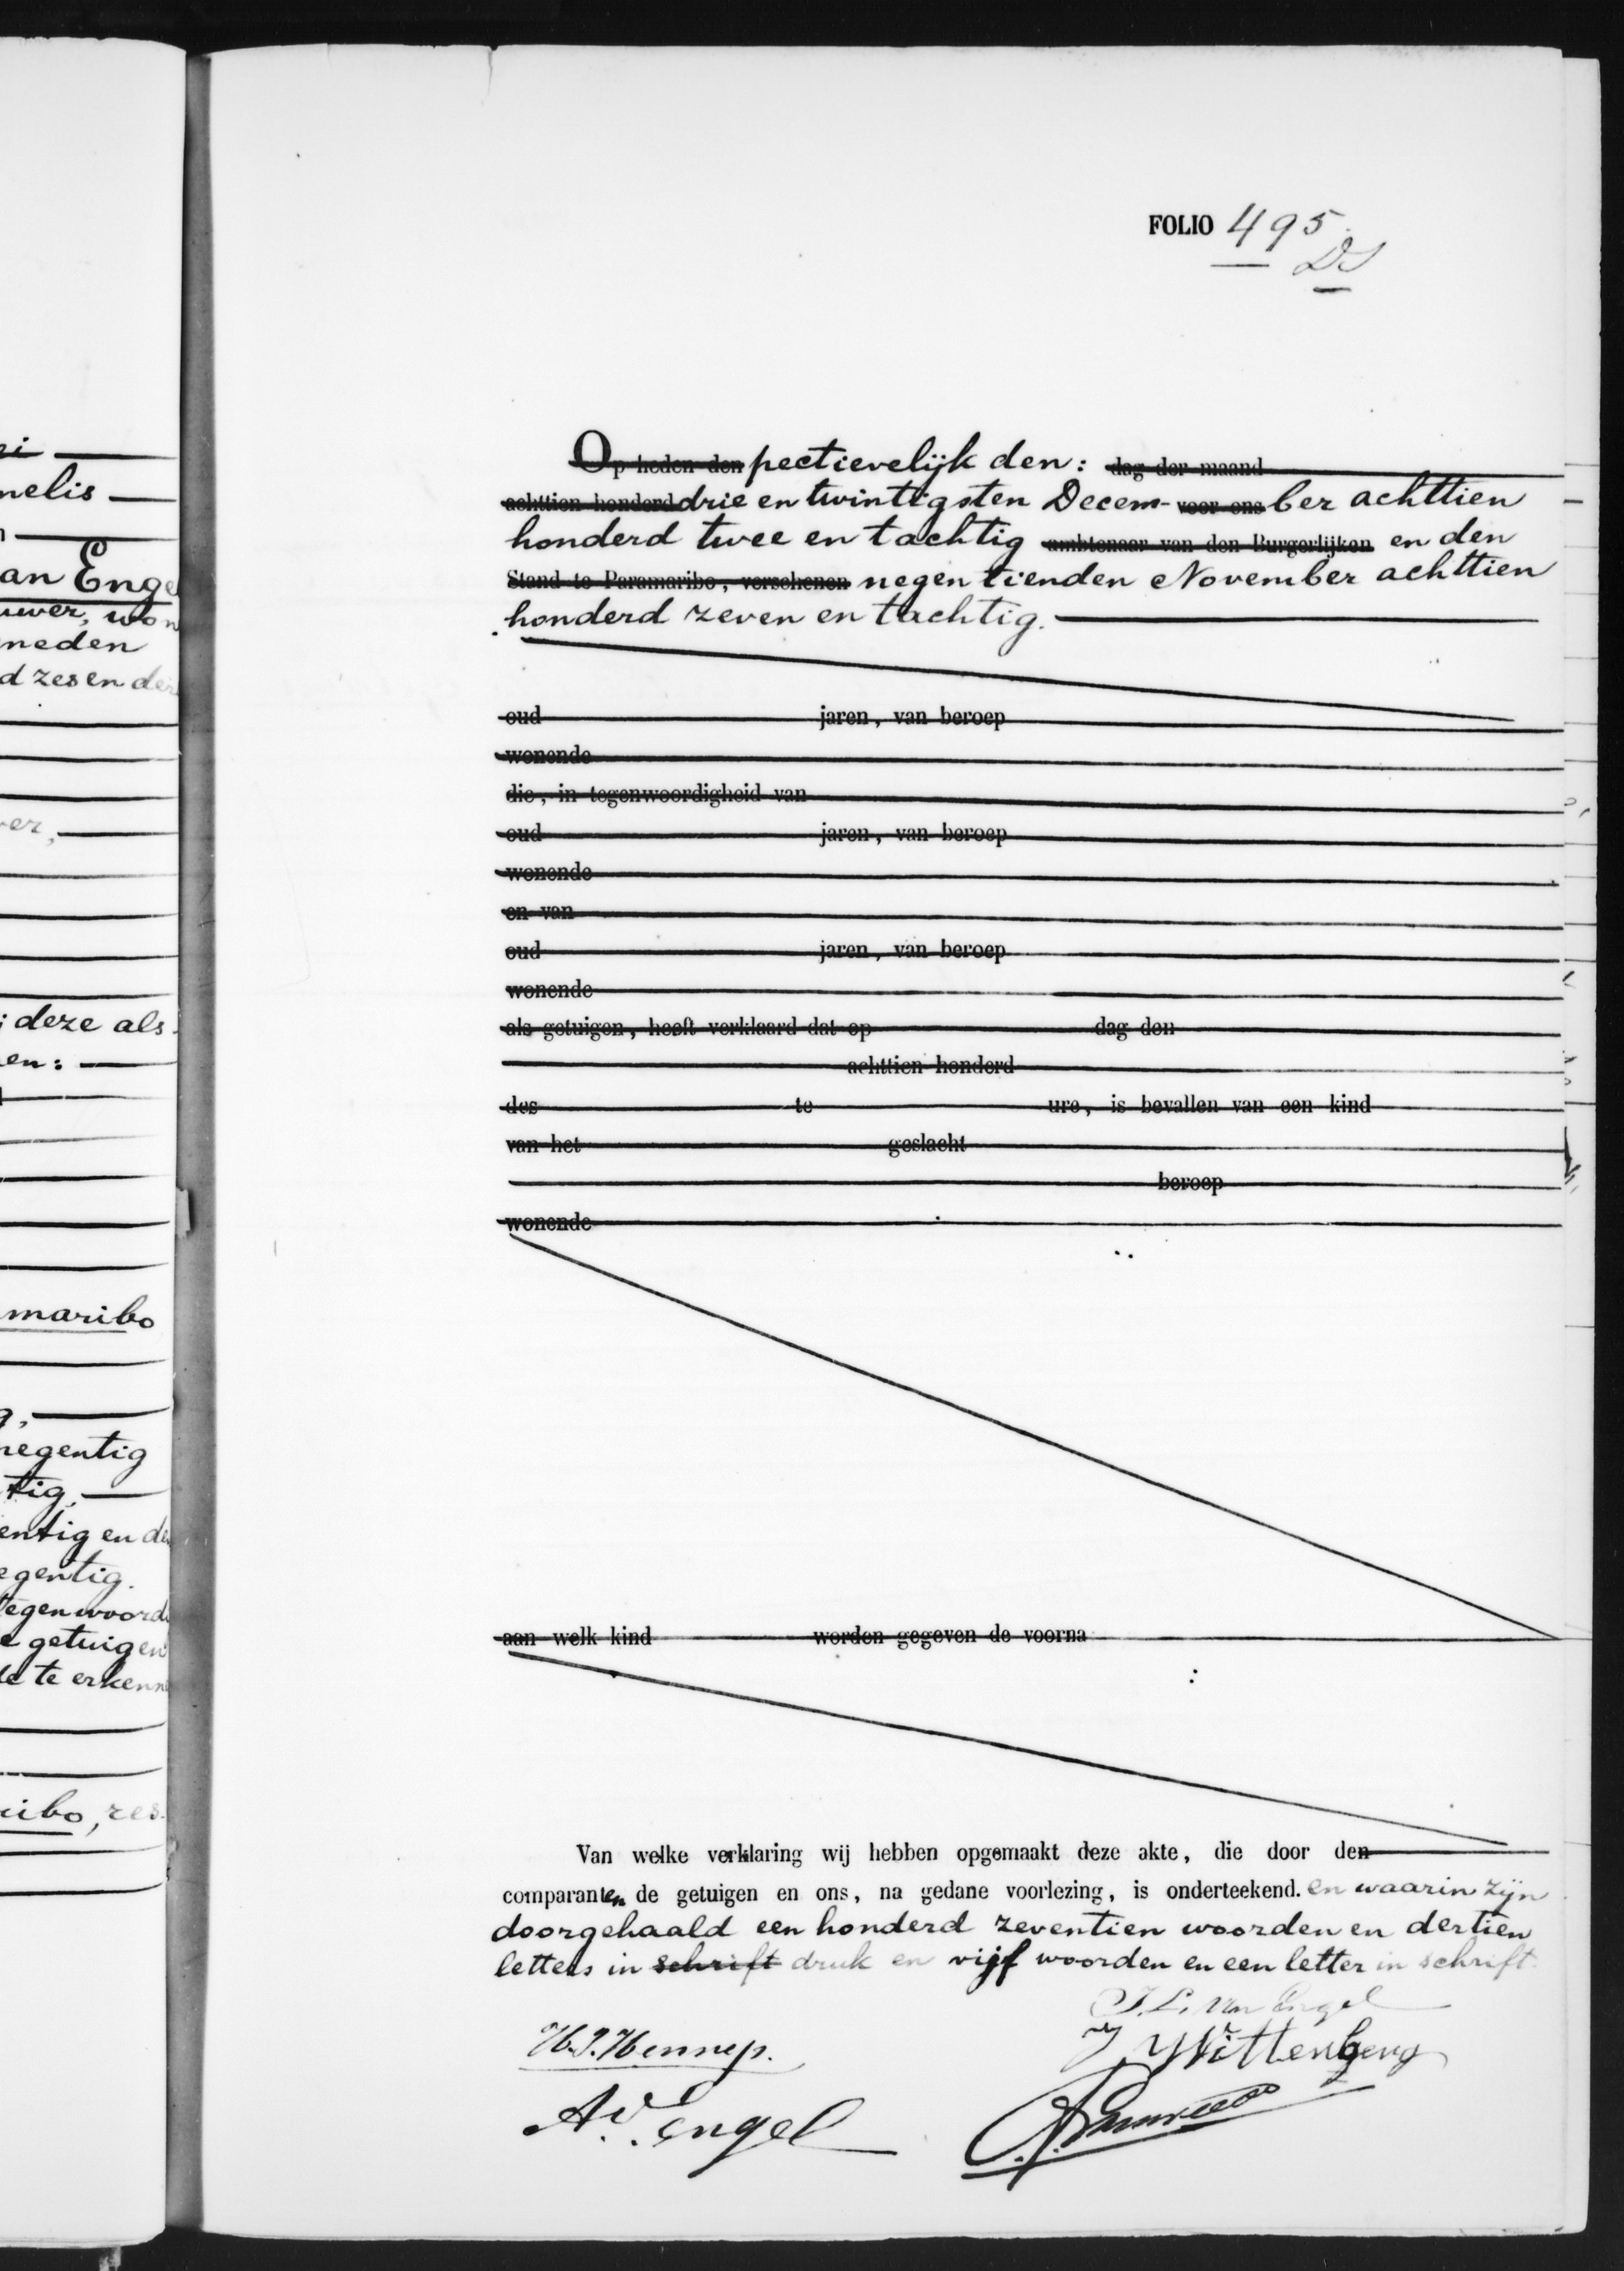 FOLIO 495.
DS
ei
nelis
an Enge
uwer, won
neden
d zes en der
er,
; deze als
en:
maribo
negentig
tig,
entig en de
egentig.
tegenwoord
e getuigen
de te erkenn
ribo, res-
Op heden den pectievelijk den: dag der maand
achttien honderd drie en twintigsten Decem- voor ons ber achttien
honderd twee en tachtig ambtenaar van den Burgerlijken en den
Stand te Paramaribo, verschenen negentienden November achttien
honderd zeven en tachtig.
oud jaren, van beroep
wonende
die, in tegenwoordigheid van
oud jaren, van beroep
wonende
en van
oud jaren, van beroep
wonende
als getuigen, heeft verklaard dat op dag den
achttien honderd
des te ure, is bevallen van een kind
van het geslacht
beroep
wonende
aan welk kind worden gegeven de voorna
Van welke verklaring wij hebben opgemaakt deze akte, die door den
comparanten de getuigen en ons, na gedane voorlezing, is onderteekend. en waarin zijn
doorgehaald een honderd zeventien woorden en dertien
letters in schrift druk en vijf woorden en een letter in schrift.
J. L. van Engel
H. J. Hennep.
J Wittenberg
A v. Engel